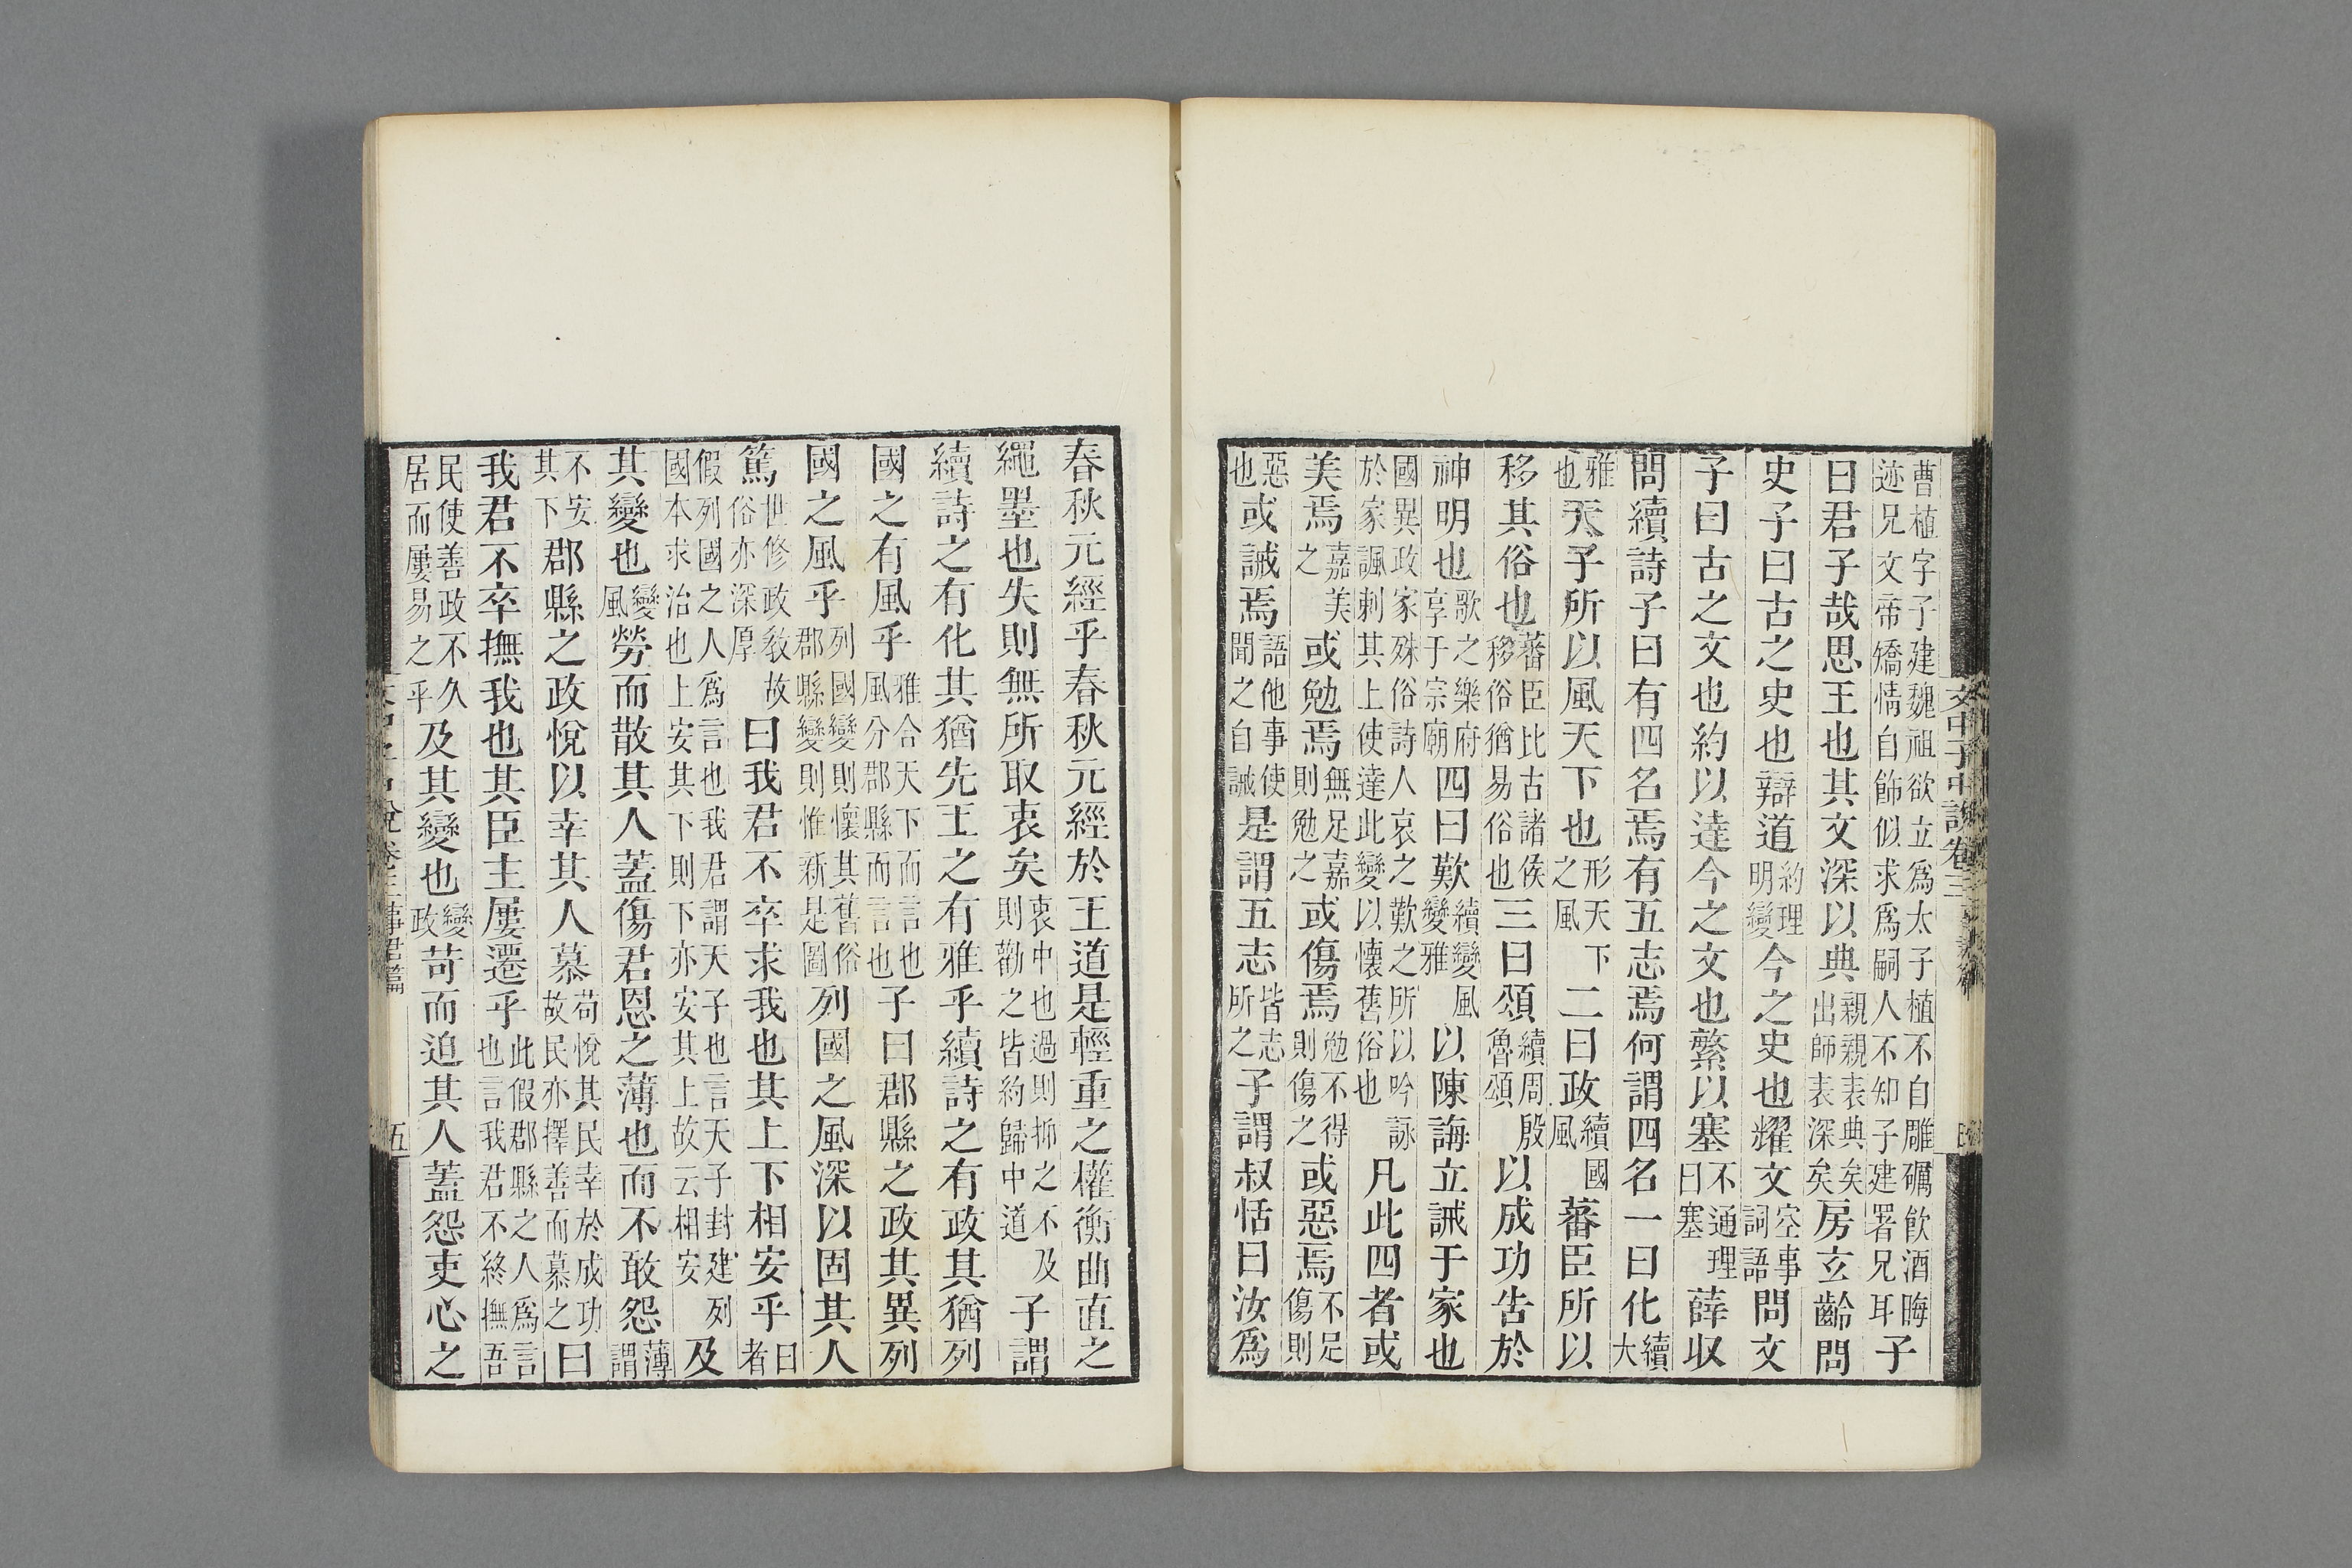 文中子中說卷三
曹植字子建魏祖欲立爲太子植不自雕礪飲酒晦迹兄文帝矯情自飾似求爲嗣人不知子建署兄耳子
曰君子哉思王也其文深以典親親表典矣出師表深矣房玄齡問
史子曰古之史也辯道約理明變今之史也耀文空事詞語問文
子曰古之文也約以達今之文也繁以塞不通理曰塞薛收
問續詩子曰有四名焉有五志焉何謂四名一曰化續大
雅也天子所以風天下也形天下之風二曰政續國風蕃臣所以
移其俗也蕃臣比古諸侯移俗猶易俗也三曰頌續周殷魯頌以成功告於
神明也歌之樂府享于宗廟四曰歎續變風變雅以陳誨立誡于家也
國異政家殊俗詩人哀之歎之所以吟詠於家諷刺其上使達此變以懷舊俗也凡此四者或
美焉嘉美之或勉焉無足嘉則勉之或傷焉勉不得則傷之或惡焉不足傷則
惡也或誡焉語他事使聞之自誡是謂五志皆志所之子謂叔恬曰汝爲
春秋元經乎春秋元經於王道是輕重之權衡曲直之
繩墨也失則無所取衷矣衷中也過則抑之不及則勸之皆約歸中道子謂
續詩之有化其猶先王之有雅乎續詩之有政其猶列
國之有風乎雅合天下而言也風分郡縣而言也子曰郡縣之政其異列
國之風乎列國變則懷其舊俗郡縣變則惟新是圖列國之風深以固其人
篤世修政敎故俗亦深厚曰我君不卒求我也其上下相安乎曰者
假列國之人爲言也我君謂天子也言天子封建列國本求治也上安其下則下亦安其上故云相安及
其變也變風勞而散其人蓋傷君恩之薄也而不敢怨薄謂
不安其下郡縣之政悅以幸其人慕苟悅其民幸於成功故民亦擇善而慕之曰
我君不卒撫我也其臣主屢遷乎此假郡縣之人爲言也言我君不終撫吾
民使善政不久居而屢易之乎及其變也變政苛而迫其人蓋怨吏心之
卷三事君篇 五